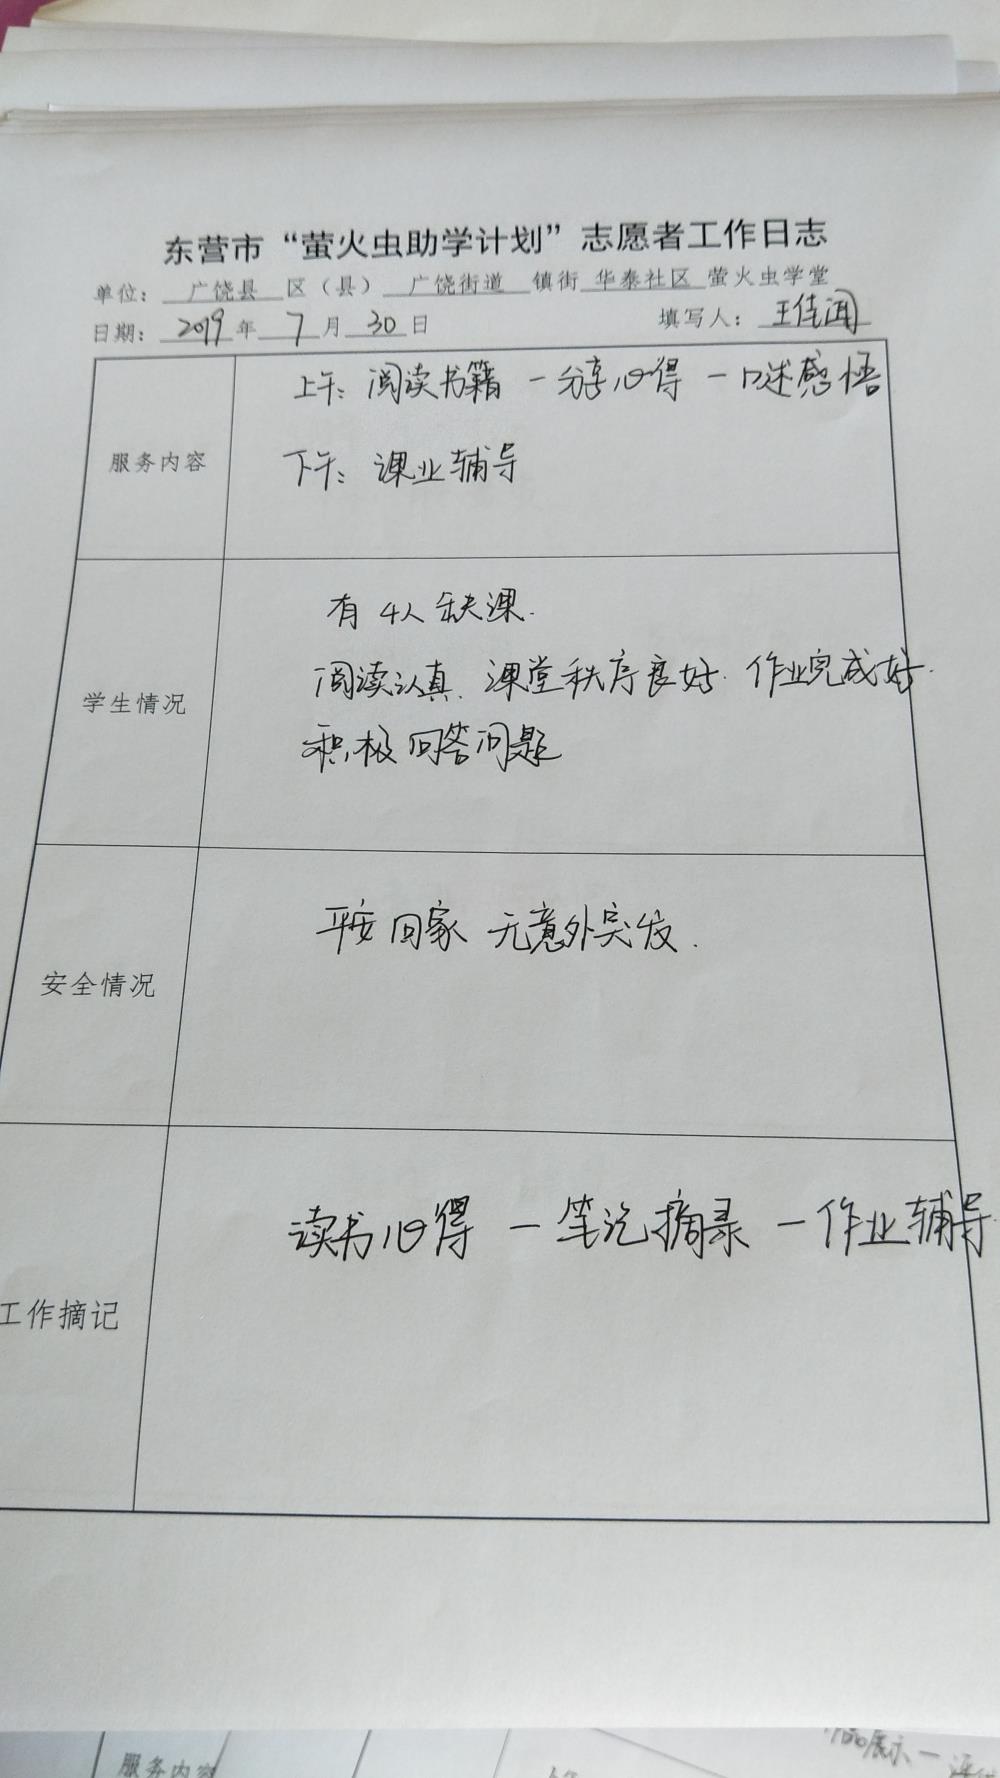 东营市“萤火虫助学计划”志愿者工作日志
单位： 广饶县 区（县） 广饶街道 镇街 华泰社区 萤火虫学堂
日期： 2019 年 7 月 30 日 填写人： 王佳润
服务内容
上午：阅读书籍 — 分享心得 — 口述感悟
下午：课业辅导
学生情况
有4人缺课.
阅读认真、课堂秩序良好. 作业完成好.
积极回答问题
安全情况
平安回家 无意外突发.
工作摘记
读书心得 — 笔记摘录 — 作业辅导
服务内容
品展示 —